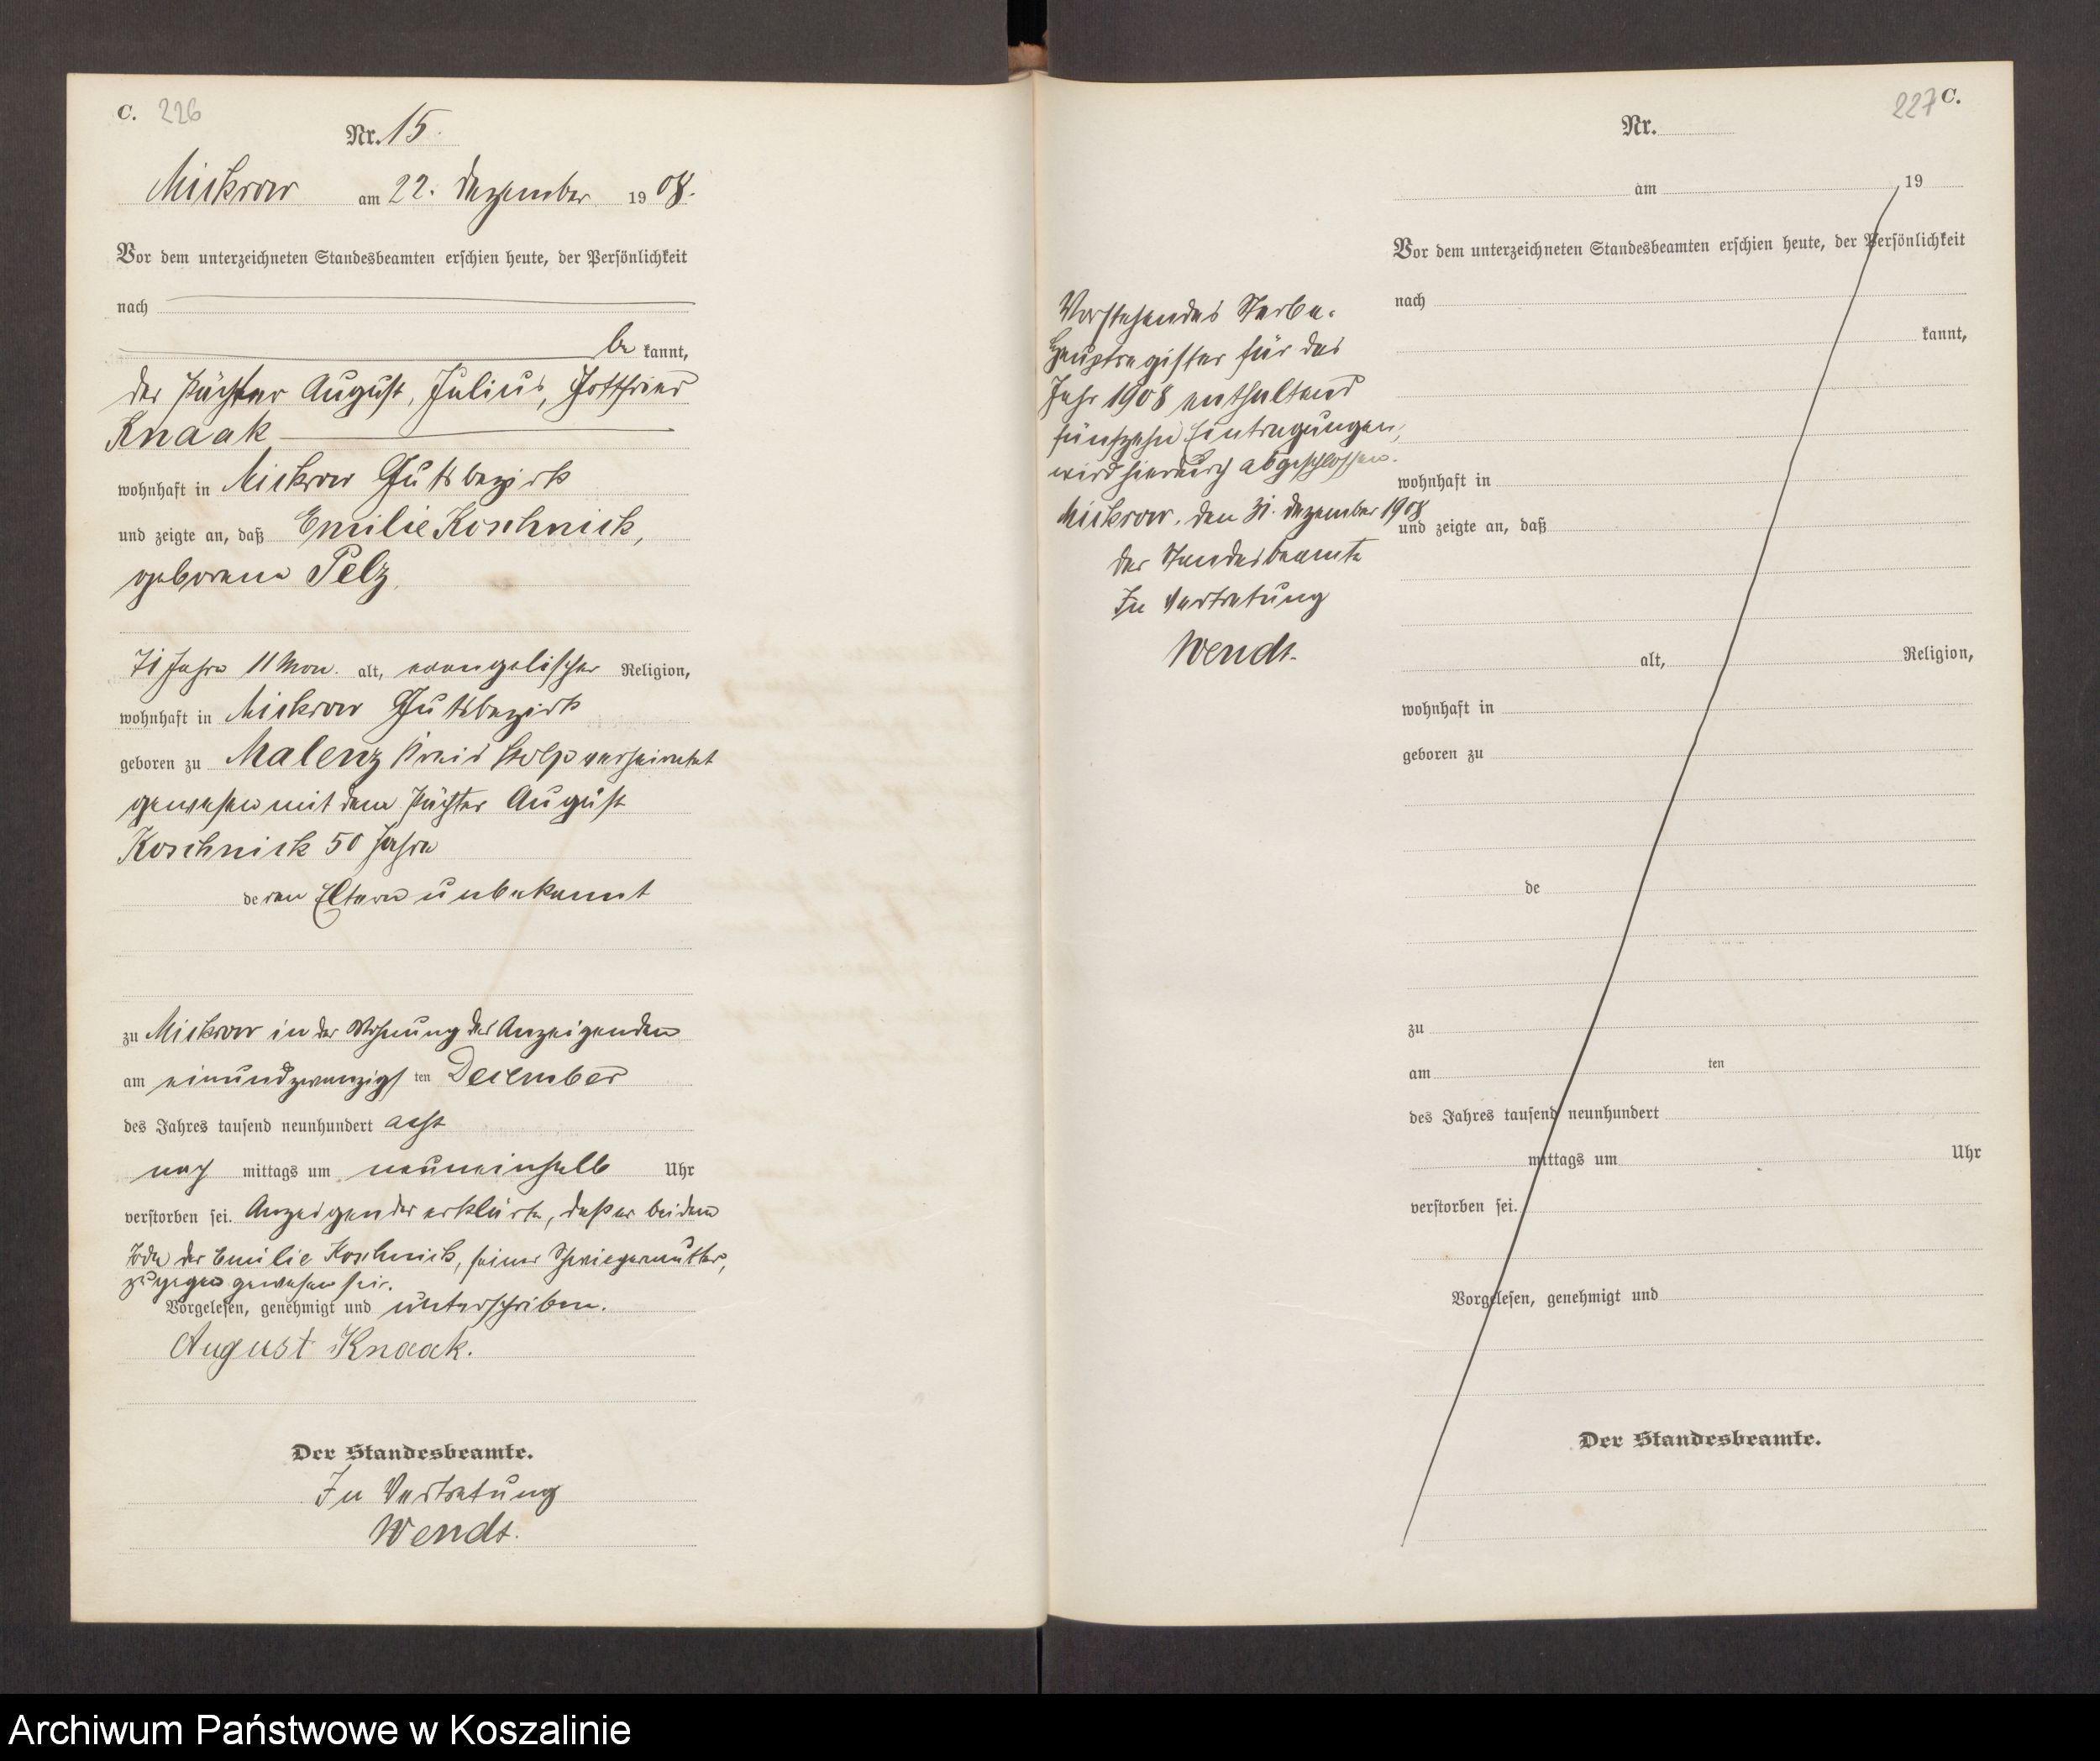 C. 226
Nr. 15.
Mickrow am 22. Dezember 1908.
Vor dem unterzeichneten Standesbeamten erschien heute, der Persönlichkeit
nach
be kannt,
der Pächter August, Julius, Gottfried
Knaak
wohnhaft in Mickrow Gutsbezirk
und zeigte an, daß Emilie Koschnick,
geborene Pelz,
71 Jahre 11 Mon. alt, evangelischer Religion,
wohnhaft in Mickrow Gutsbezirk
geboren zu Malenz Kreis Stolp verheiratet
gewesen mit dem Pächter August
Koschnick 50 Jahre
deren Eltern unbekannt
zu Mickrow in der Wohnung des Anzeigenden
am einundzwanzigsten December
des Jahres tausend neunhundert acht
nach mittags um neuneinhalb Uhr
verstorben sei. Anzeigender erklärte, daß er bei dem
Tode der Emilie Koschnick, seiner Schwiegermutter,
zugegen gewesen sei.
Vorgelesen, genehmigt und unterschriben.
August Knaak.
Der Standesbeamte.
In Vertretung
Wendt.
227 C.
Nr.
am 19
Vor dem unterzeichneten Standesbeamten erschien heute, der Persönlichkeit
nach
kannt,
wohnhaft in
und zeigte an, daß
alt, Religion,
wohnhaft in
geboren zu
de
zu
am ten
des Jahres tausend neunhundert
mittags um Uhr
verstorben sei.
Vorgelesen, genehmigt und
Der Standesbeamte.
Vorstehendes Sterbe-
Hauptregister für das
Jahr 1908 enthaltend
fünfzehn Eintragungen,
wird hierdurch abgeschlossen.
Mickrow, den 31. Dezember 1908
Der Standesbeamte
In Vertretung
Wendt.
Archiwum Państwowe w Koszalinie